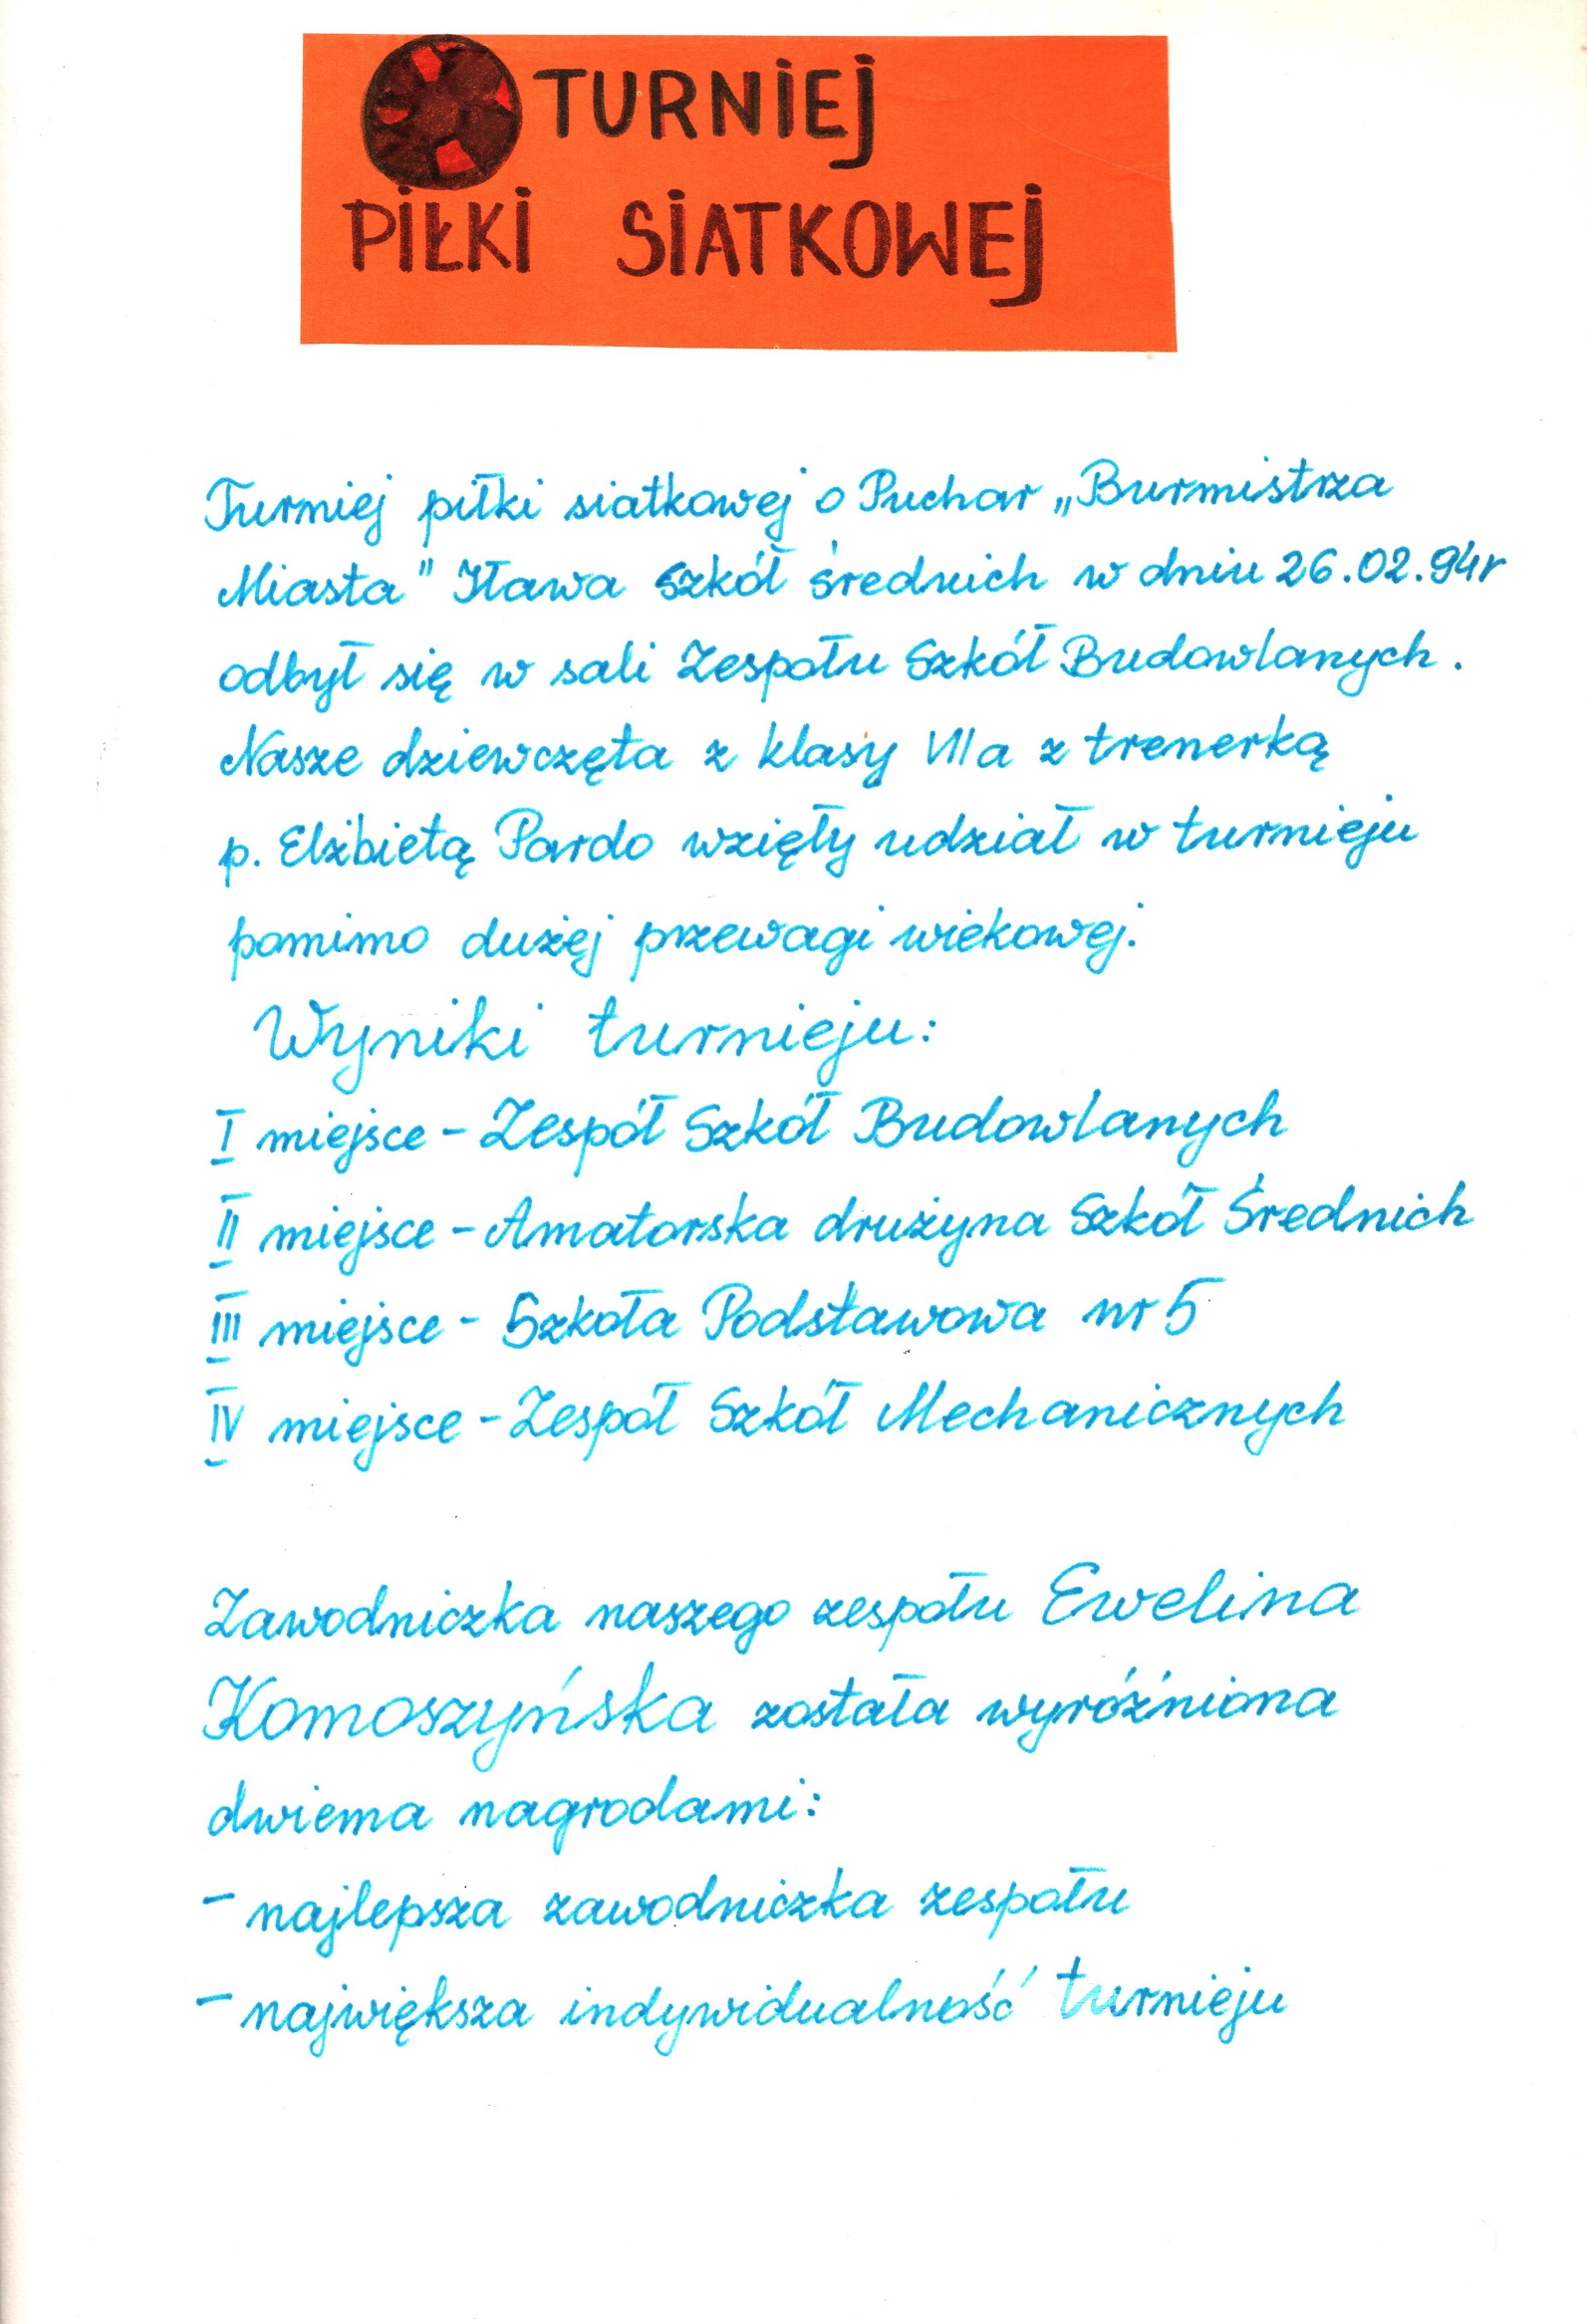 TURNIEJ
PIŁKI SIATKOWEJ
Turniej piłki siatkowej o Puchar „Burmistrza
Miasta" Iława Szkół Średnich w dniu 26.02.94r
odbył się w sali Zespołu Szkół Budowlanych.
Nasze dziewczęta z klasy VII a z trenerką
p. Elżbietą Pardo wzięły udział w turnieju
pomimo dużej przewagi wiekowej.
Wyniki turnieju:
I miejsce - Zespół Szkół Budowlanych
II miejsce - Amatorska drużyna Szkół Średnich
III miejsce - Szkoła Podstawowa nr 5
IV miejsce - Zespół Szkół Mechanicznych
Zawodniczka naszego zespołu Ewelina
Komoszyńska została wyróźniona
dwiema nagrodami:
- najlepsza zawodniczka zespołu
- największa indywidualność turnieju